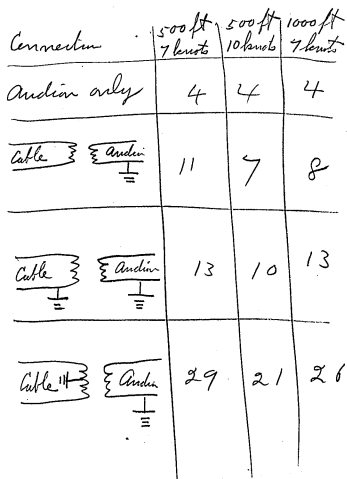 Connection 500 ft 7 knots 500 ft 10 knots 1000 ft 7 knots
Audion only 4 4 4
Cable Audion 11 7 8
Cable Audion 13 10 13
Cable Audion 29 21 26